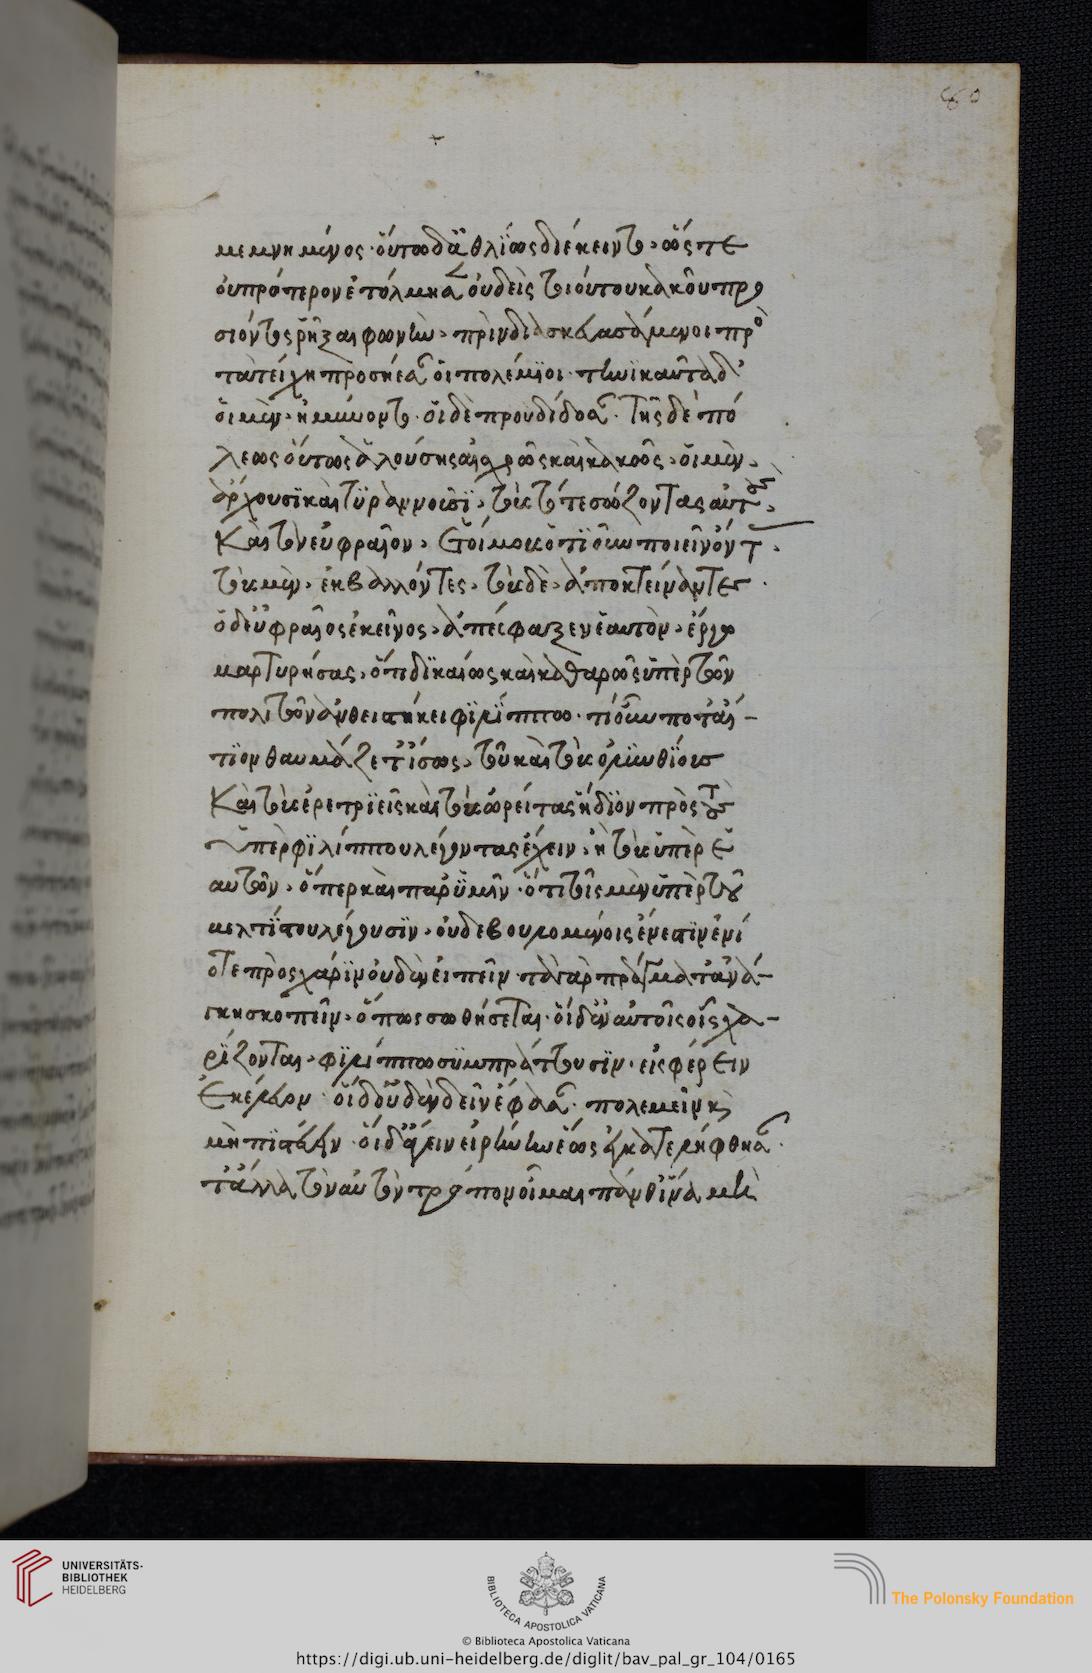 80
μεμνημένος· οὕτω δ' ἀθλίως διέκειντο, ὥς τε
οὐ πρότερον ἐτόλμησεν οὐδεὶς τοιούτου κακοῦ προ
σιόντος ῥῆξαι φωνὴν, πρὶν διασκευασάμενοι πρὸ
τὰ τείχη προσῄεσαν οἱ πολέμιοι· τηνικαῦτα δ'
οἱ μὲν, ἠμύνοντο· οἱ δὲ προὐδίδοσαν· τῆς δὲ πό
λεως οὕτως ἁλούσης αἰσχρῶς καὶ κακῶς, οἱ μὲν,
ἄρχουσι καὶ τυραννοῦσι, τοὺς τότε σώζοντας αὐτοὺς,
καὶ τὸν εὐφραῖον, ἑτοίμους ὁτιοῦν ποιεῖν ὄντας,
τοὺς μὲν, ἐκβαλλόντες, τοὺς δὲ, ἀποκτείναντες·
ὁ δ' εὐφραῖος ἐκεῖνος, ἀπέσφαξεν ἑαυτὸν, ἔργῳ
μαρτυρήσας, ὅτι δικαίως καὶ καθαρῶς ὑπὲρ τῶν
πολιτῶν ἀνθειστήκει φιλίππῳ· τί οὖν ποτ' αἴ-
τιον θαυμάζετ' ἴσως, τοῦ καὶ τοὺς ὀλυνθίους
καὶ τοὺς ἐρετριεῖς καὶ τοὺς ὠρείτας ἥδιον πρὸς τοὺς
ὑπὲρ φιλίππου λέγοντας ἔχειν, ἢ τοὺς ὑπὲρ ἑ
αυτῶν, ὅπερ καὶ παρ' ὑμῖν· ὅτι τοῖς μὲν ὑπὲρ τοῦ
βελτίστου λέγουσιν, οὐδὲ βουλομένοις ἔνεστιν ἐνί
οτε πρὸς χάριν οὐδὲν εἰπεῖν· τὰ γὰρ πράγματ' ἀνά-
γκη σκοπεῖν, ὅπως σωθήσεται· οἱ δ' ἐν αὐτοῖς οἷς χα-
ρίζονται, φιλίππῳ συμπράττουσιν· εἰσφέρειν
ἐκέλευον· οἱ δ' οὐδὲν δεῖν ἔφασαν· πολεμεῖν καὶ
μὴ πιστεύειν· οἱ δ' ἄγειν εἰρήνην ἕως ἐγκατελήφθησαν·
τἆλλα τὸν αὐτὸν τρόπον οἶμαι πάνθ' ἵνα μὴ
UNIVERSITÄTS-
BIBLIOTHEK
HEIDELBERG
BIBLIOTECA APOSTOLICA VATICANA
The Polonsky Foundation
© Biblioteca Apostolica Vaticana
https://digi.ub.uni-heidelberg.de/diglit/bav_pal_gr_104/0165